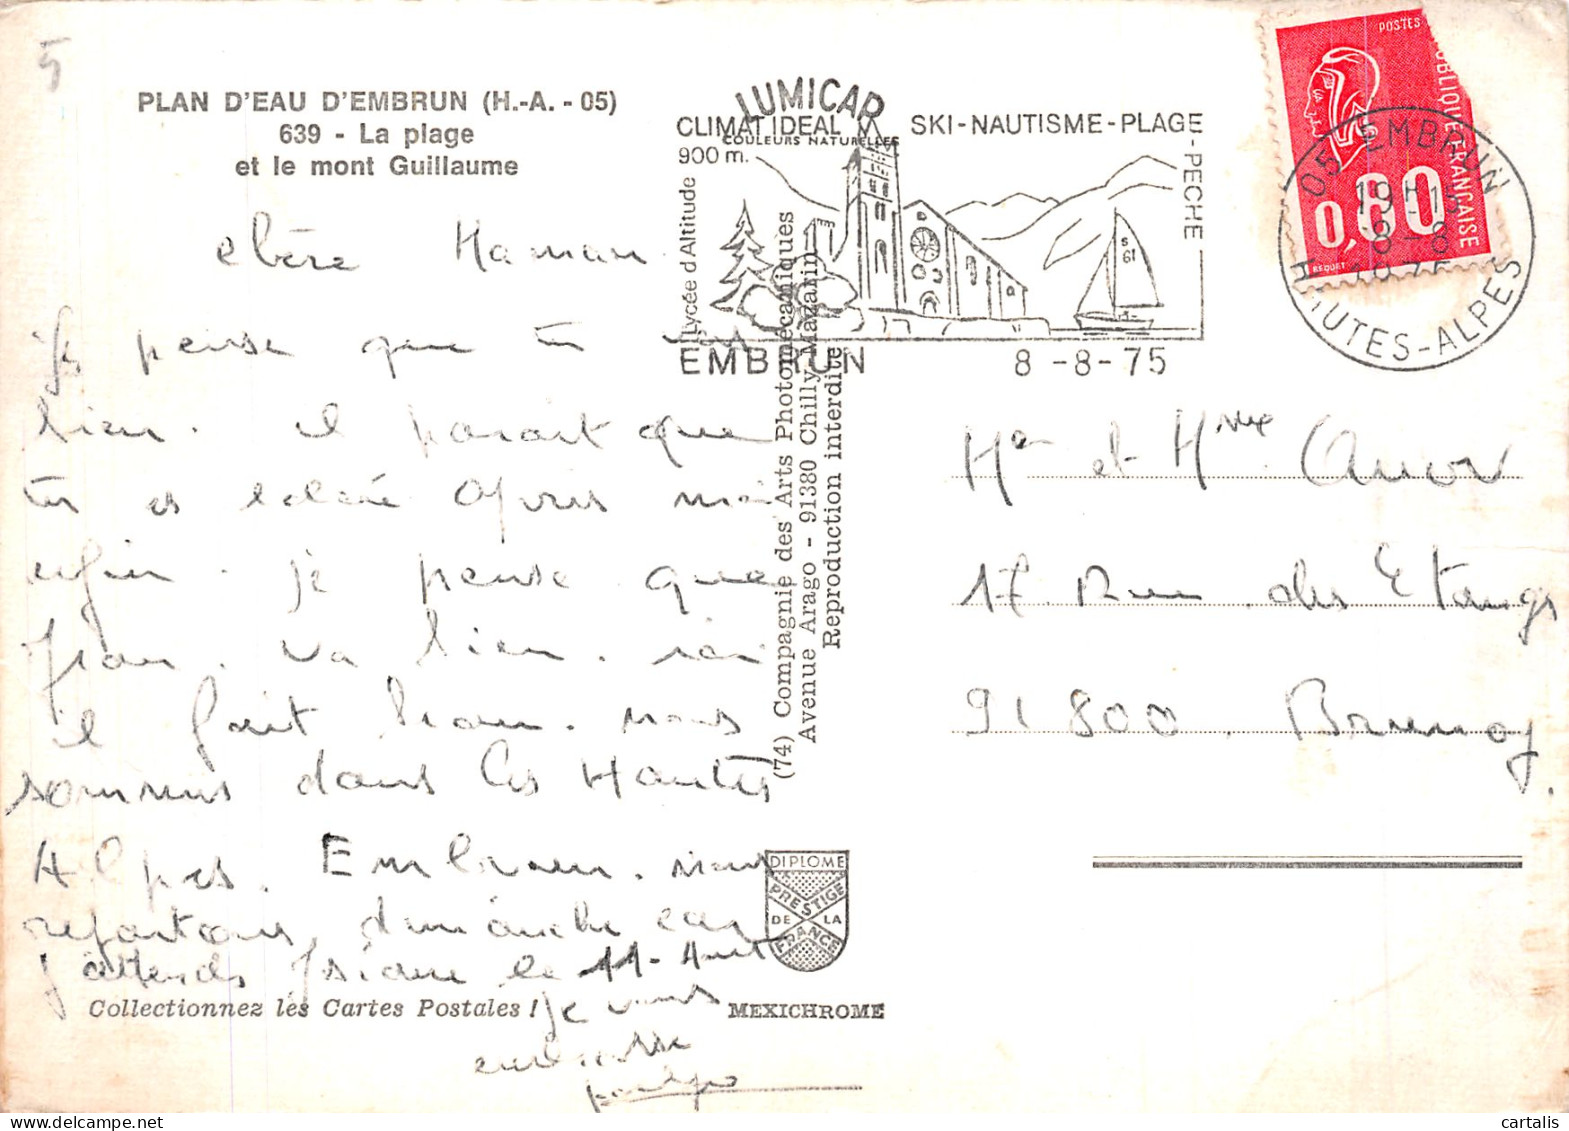 5
PLAN D'EAU D'EMBRUN (H.-A. - 05)
639 - La plage
et le mont Guillaume
LUMICAP
COULEURS NATURELLES
CLIMAT IDEAL
900 m.
Lycée d'Altitude
SKI-NAUTISME-PLAGE
-PECHE
S
61
EMBRUN
8 -8-75
POSTES
REPUBLIQUE FRANCAISE
0,80
BEQUET
05 EMBRUN
19H15
8-8
1975
HAUTES-ALPES
chère Maman
je pense que tu vas
bien. il parait que
tu es           après moi
enfin. je pense que
Jean. va bien. ici
il fait beau. nous
sommes dans les Hautes
Alpes. Embrun. nous
repartons dimanche car
j'attends         le 11-Aout
je vous
embrasse
(74) Compagnie des Arts Photomécaniques
Avenue Arago - 91380 Chilly-Mazarin
Reproduction interdite
Mr et Mme
17 Rue des Etangs
91 800 Brunoy.
DIPLOME
PRESTIGE
DE LA
FRANCE
Collectionnez les Cartes Postales !
MEXICHROME
cartalis | delcampe.net